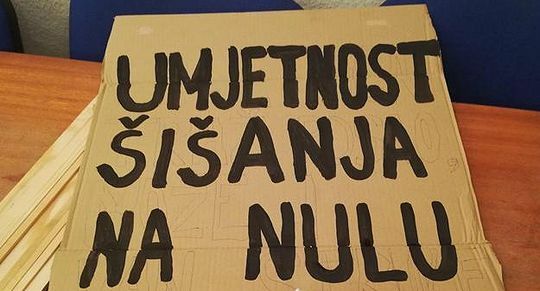 UMJETNOST
ŠIŠANJA
NA NULU